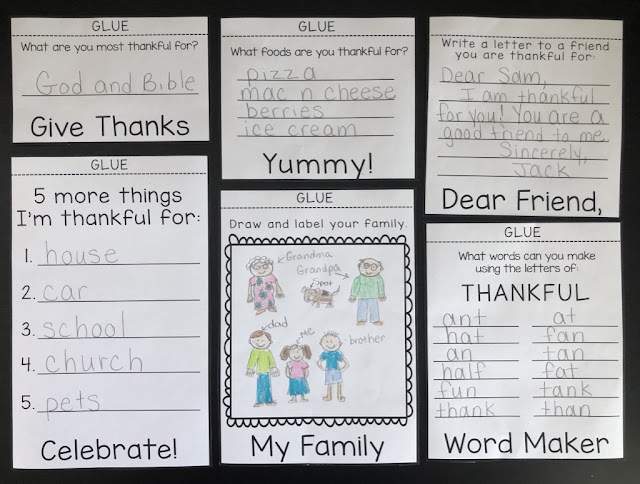 GLUE
What are you most thankful for?
God and Bible
Give Thanks
GLUE
What foods are you thankful for?
pizza
mac n cheese
berries
ice cream
Yummy!
GLUE
Write a letter to a friend
you are thankful for:
Dear Sam,
I am thankful
for you! You are a
good friend to me.
Sincerely,
Jack
Dear Friend,
GLUE
5 more things
I'm thankful for:
1. house
2. car
3. school
4. church
5. pets
Celebrate!
GLUE
Draw and label your family.
Grandma
Grandpa
Spot
dad
me
brother
My Family
GLUE
What words can you make
using the letters of:
THANKFUL
ant at
hat fan
an tan
half fat
fun tank
thank than
Word Maker